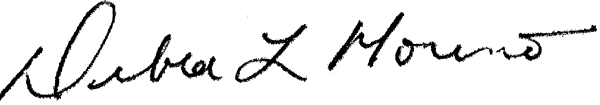 Debra L Moreno